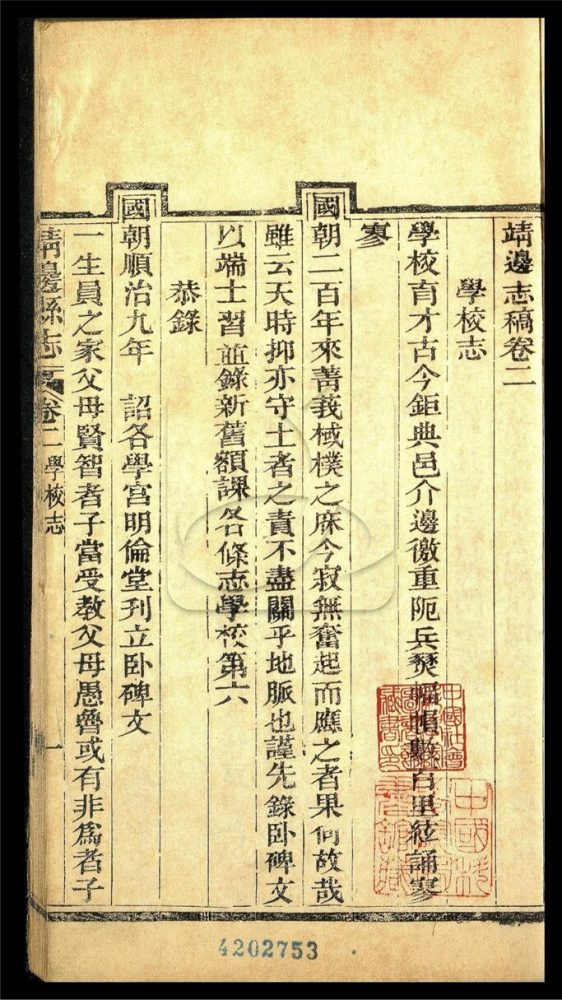 靖邊志稿卷二
學校志
學校育才古今鉅典邑介邊徼重阨兵燹幅幀數百里絃誦寥
寥
國朝二百年來菁莪棫樸之庥今寂無奮起而應之者果何故哉
雖云天時抑亦守土者之責不盡關乎地脈也謹先錄卧碑文
以端士習並錄新舊額課各條志學校第六
恭錄
國朝順治九年　詔各學宮明倫堂刋立卧碑文
一生員之家父母賢智者子當受教父母愚魯或有非爲者子
靖邊縣志
卷二學校志
一
4202753